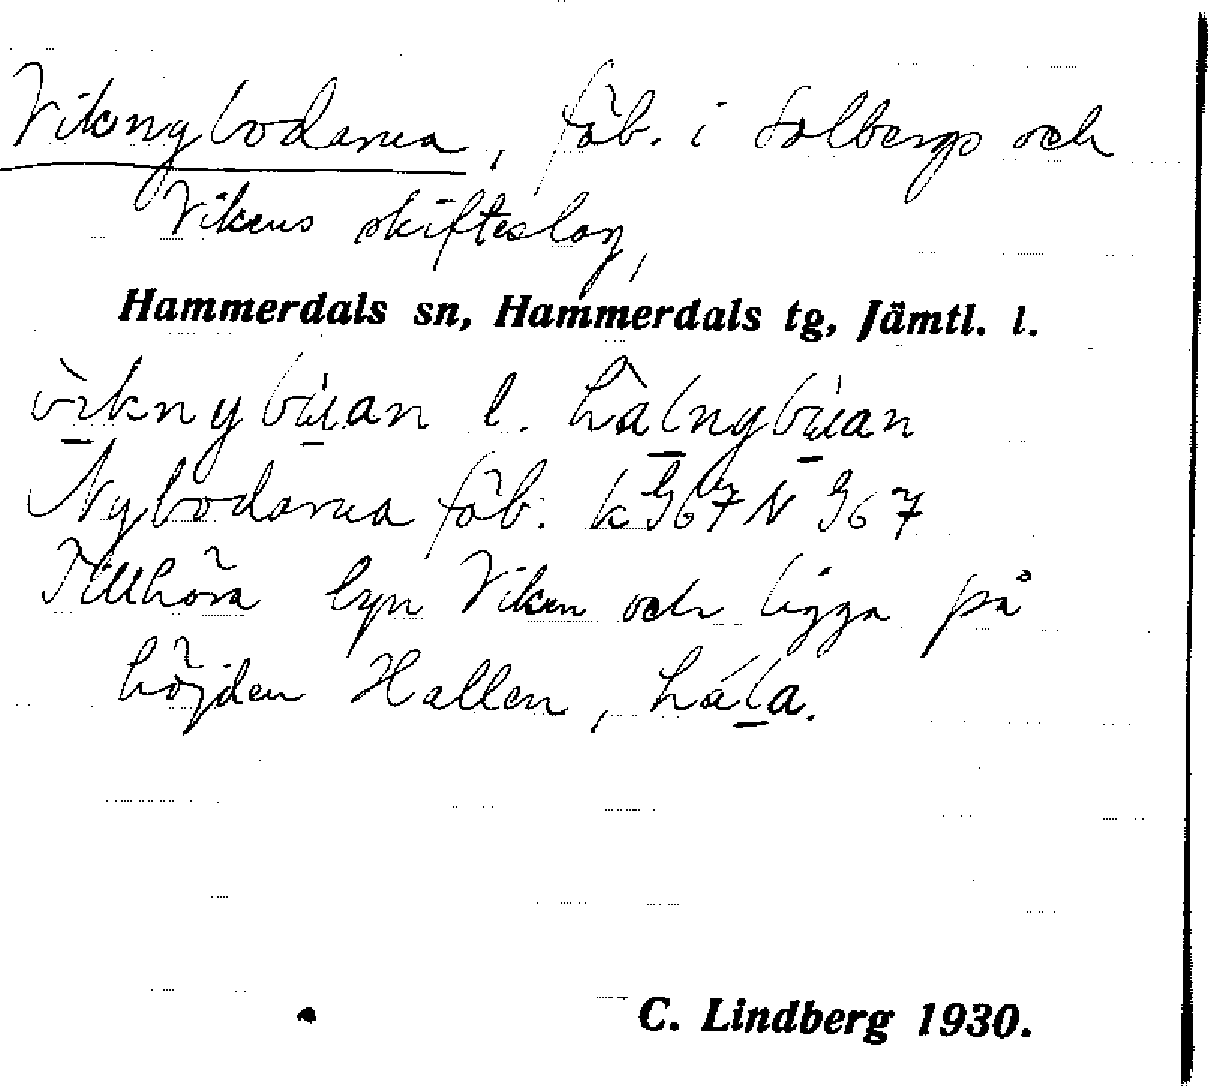 Viknybodarna, fäb. i Solbergs och
Vikens skifteslag,
Hammerdals sn, Hammerdals tg, Jämtl. l.
l.
Nybodarna fäb. k G67 N G67
Tillhöra byn Viken och ligga på
höjden Hallen, hála.
C. Lindberg 1930.